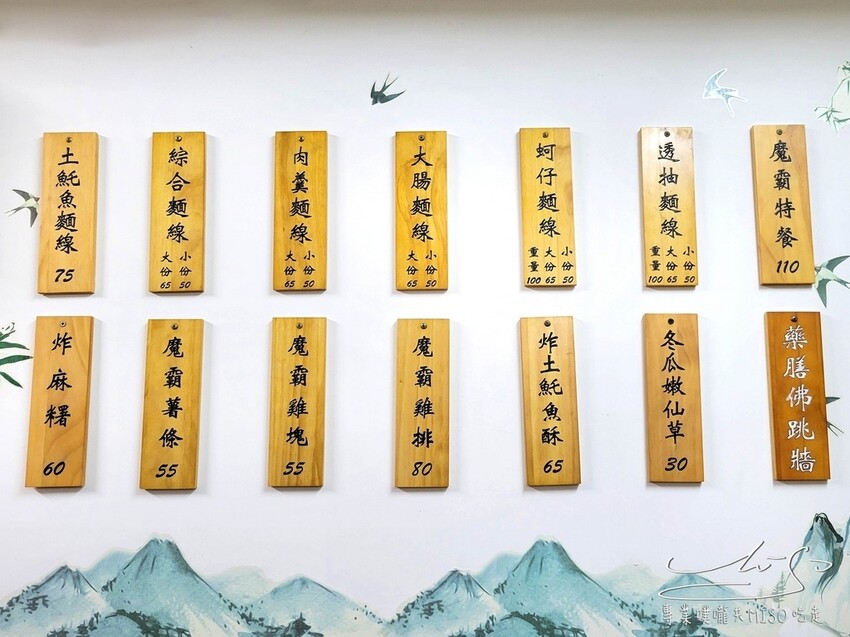 土魠魚麵線
75
綜合麵線
小份 50
大份 65
肉羹麵線
小份 50
大份 65
大腸麵線
小份 50
大份 65
蚵仔麵線
小份 50
大份 65
重量 100
透抽麵線
小份 50
大份 65
重量 100
魔霸特餐
110
炸麻糬
60
魔霸薯條
55
魔霸雞塊
55
魔霸雞排
80
炸土魠魚酥
65
冬瓜嫩仙草
30
藥膳佛跳牆
MISO
專業噗嚨共MISO吃走